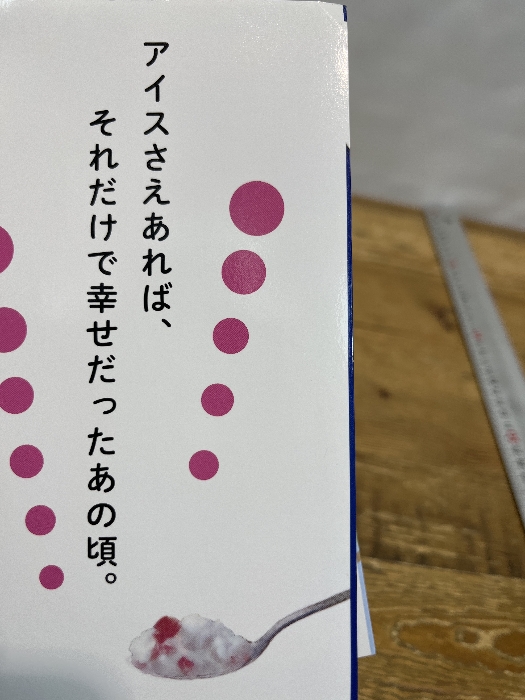 アイスさえあれば、
それだけで幸せだったあの頃。